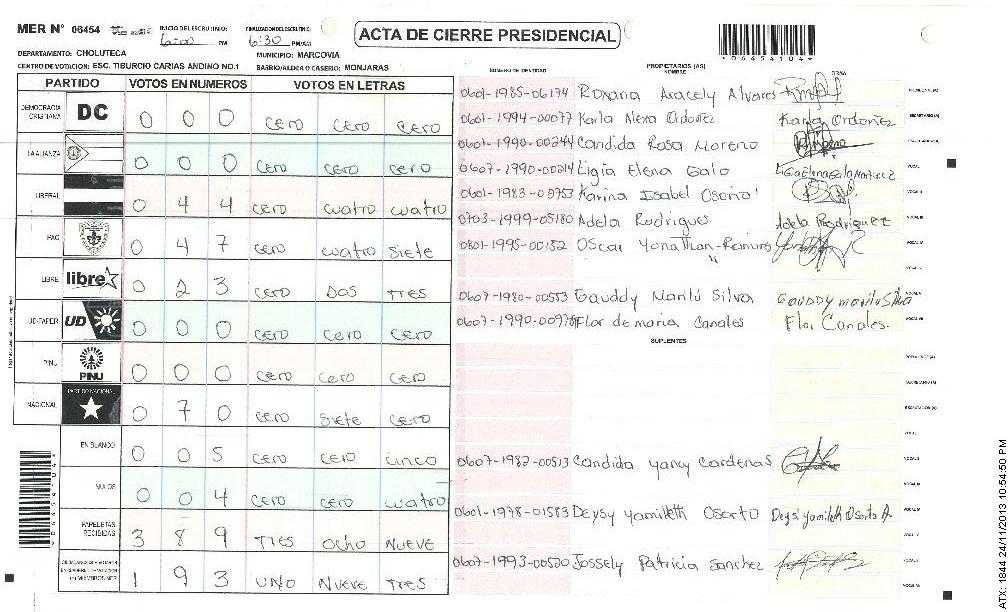 MER N° 06454 INICIO DEL ESCRUTINIO: 6:00 PM FINALIZACION DEL ESCRUTINIO: 6:30 PM/AM
ACTA DE CIERRE PRESIDENCIAL
06454104
DEPARTAMENTO: CHOLUTECA MUNICIPIO: MARCOVIA
CENTRO DE VOTACION: ESC. TIBURCIO CARIAS ANDINO NO.1 BARRIO/ALDEA O CASERIO: MONJARAS
PARTIDO VOTOS EN NUMEROS VOTOS EN LETRAS
DEMOCRACIA CRISTIANA DC 0 0 0 CERO CERO CERO
LA ALIANZA 0 0 0 CERO CERO CERO
LIBERAL 0 4 4 CERO CUATRO CUATRO
PAC 0 4 7 CERO CUATRO SIETE
LIBRE libre 0 2 3 CERO DOS TRES
UD-FAPER UD 0 0 0 CERO CERO CERO
PINU PINU 0 0 0 CERO CERO CERO
NACIONAL PARTIDO NACIONAL 0 7 0 CERO SIETE CERO
EN BLANCO 0 0 5 CERO CERO CINCO
NULOS 0 0 4 CERO CERO CUATRO
PAPELETAS RECIBIDAS 3 8 9 TRES OCHO NUEVE
1 9 3 UNO NUEVE TRES
NUMERO DE IDENTIDAD PROPIETARIOS (AS) NOMBRE FIRMA
0601-1985-06174 Roxana Aracely Alvares PRESIDENTE (A)
0601-1994-00077 Karla Alexa Ordoñez Karla Ordoñez SECRETARIO (A)
0601-1990-00244 Candida Rosa Moreno
0607-1990-00214 Ligia Elena Galo
0601-1983-00753 Karina Isabel Osorto
0703-1999-05180 Adela Rodrigues Adela Rodriguez
0801-1995-00152 Oscar Yonathan Ramires
0607-1980-00553 Gauddy Marilú Silva Gauddy marilu Silva
0607-1990-00978 Flor de maria Canales Flor Canales.
SUPLENTES
0607-1982-00513 Candida yaricy Cardenas
0601-1978-01583 Deysy Yamileth Osorto Deysi yamileth Osorto A.
0607-1993-00520 Jossely Patricia Sanchez
06454104
ATX: 1844 24/11/2013 10:54:50 PM